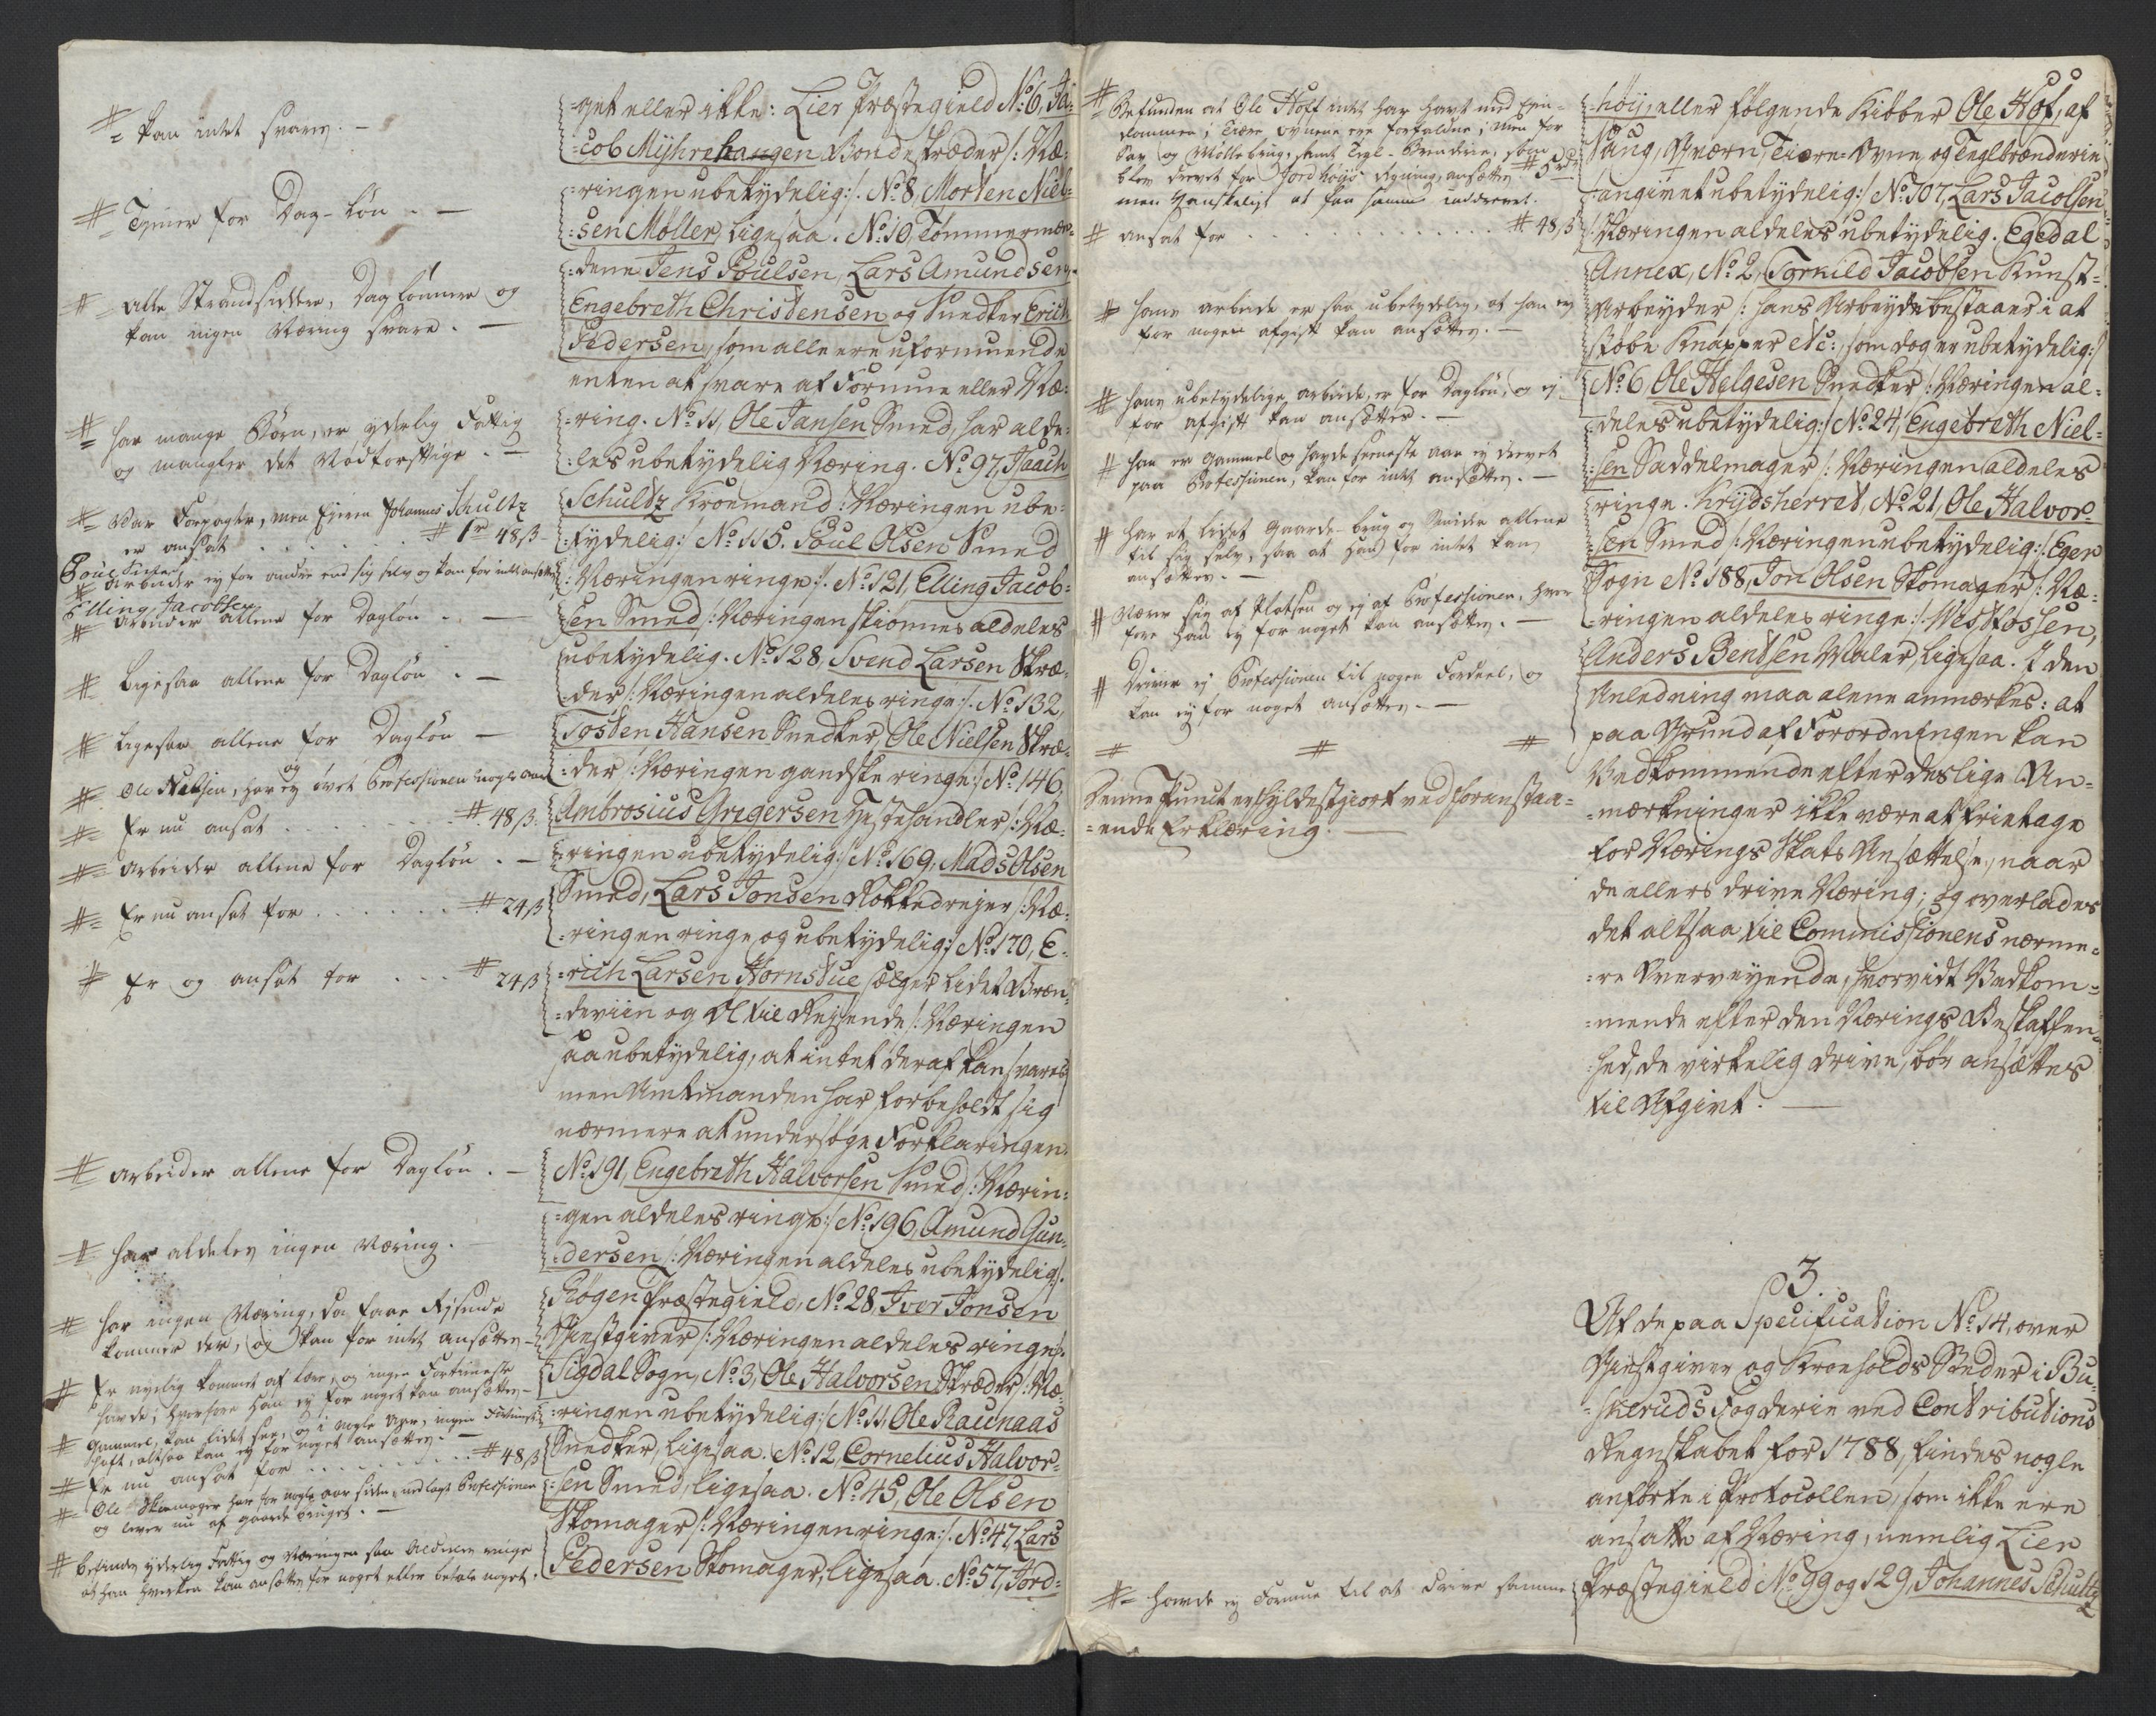 # kan intet svare. -
# Tiener for Dag-Løn. -
# Alle Strandsiddere, Daglønnere og
kan ingen Næring svare. -
# har mange Børn, er yderlig Fattig
og mangler det Nødtørftige. -
# Var Forpagter, men Eyeren Johannes Schultz
er ansat . . . . . # 1 r 48 ß
Poul Smed
# arbeider ey for andre end sig selv og kan for intet ansættes
Elling Jacobsen
# arbeider allene for Dagløn. -
# Ligesaa allene for Dagløn. -
# ligesaa allene for Dagløn -
# Ole Nielsen, har og ey øvet Professionen i nogle Aar
# Er nu ansat . . . . # 48 ß.
# arbeider allene for Dagløn. -
# Er nu ansat for . . . . # 24 ß
# Er og ansat for . . . # 24 ß
# arbeider allene for Dagløn. -
# har aldeles ingen Næring. -
# har ingen Næring, da faae Rejsende
kommer der, og kan for intet ansættes -
# Er nylig kommet af Lære, og ingen Fortieneste
havde; hvorfore han ey for noget kan ansættes -
# Gammel, kan lidet see, og i nogle Aar, ingen Fortieneste
haft, altsaa kan ey for noget ansættes. -
# Er nu ansat for . . . . # 48 ß
# Ole Skoemager har for nogle aar siden nedlagt Professionen
og lever nu af gaards bruget. -
# befindes yderlig Fattig og Næringen saa aldeles ringe
at han hverken kan ansættes for noget eller betale noget.
=get eller ikke: Lier Præstegield No. 6, Ja=
=cob Myhrehaugen Bondeskræder /: Næ=
=ringen ubetydelig :/. No. 8, Morten Niel=
=sen Møller, ligesaa. No. 10, Tømmermæn=
=dene Jens Poulsen, Lars Amundsen,
Engebreth Christensen og Snedker Erich
Pedersen, som alle ere uformuende
enten at svare af Formue eller Næ=
=ring. No. 11, Ole Jansen Smed, har alde=
=les ubetydelig Næring. No. 97, Jaach
Schultz Kroemand /: Næringen ube=
=tydelig :/ No. 115. Poul Olsen Smed
/: Næringen ringe :/. No. 121, Elling Jacob=
=sen Smed /: Næringen skiønnes aldeles
ubetydelig. No. 128, Svend Larsen Skræ=
=der /: Næringen aldeles ringe :/. No. 132,
Tosten Hansen Snedker, Ole Nielsen Skræ=
=der /: Næringen gandske ringe :/ No. 146.
Ambrosius Gregersen Hestehandler /: Næ=
=ringen ubetydelig :/ No. 169, Mads Olsen
Smed, Lars Jonsen Rokkedrejer /: Næ=
=ringen ringe og ubetydelig :/ No. 170, E=
=rich Larsen Hornstue sælger lidet Bræn=
=deviin og Øl til Rejsende /: Næringen
saa ubetydelig, at intet deraf kan svares,
men Amtmanden har forbeholdt sig
nærmere at undersøge Forklaringen.
No. 191, Engebreth Halvorsen Smed /: Nærin=
=gen aldeles ringe :/ No. 196, Amund Gun=
=dersen /: Næringen aldeles ubetydelig :/.
Røgen Præstegield, No. 28, Iver Jonsen
Giestgiver /: Næringen aldeles ringe :/.
Sigdal Sogn, No. 3, Ole Halvorsen Skræder /: Næ=
=ringen ubetydelig :/ No. 11 Ole Raunaas
Snedker, ligesaa. No. 12, Cornelius Halvor=
=sen Smed, ligesaa. No. 45, Ole Olsen
Skomager /: Næringen ringe :/. No. 47, Lars
Pedersen Skomager, ligesaa. No. 57, Jord=
# Befunden at Ole Hoff intet har havt med Ejen=
dommen i Tiære ovnene ere forfaldne; men for
Sav og Møllebrug, samt Tegl-Brænderie, som
blev drevet for Jordhøys Regning, ansættes # 5 r.
men vanskeligt at faa samme inddrevet.
# ansat for . . . . . . . # 48 ß
# hans arbeide er saa ubetydelig, at han ey
for nogen afgift kan ansættes. -
# hans ubetydelige arbeide, er for Dagløn, og ej
for afgift kan ansættes. -
# han er gammel og havde seeneste aar ej drevet
paa Professionen, kan for intet ansættes. -
# har et lidet Gaards-brug og Smider allene
til sig selv, saa at han for intet kan
ansættes. -
# Nærer sig af Pladsen og ej af Professionen, hvor
fore han ey for noget kan ansættes. -
# Driver ej Professionen til nogen Fordeel, og
kan ey for noget ansættes. -
# # #
Denne Punct er fyldestgiort ved foranstaa=
=ende Erklæring. -
# havde ej Formue til at drive samme
=høy, eller følgende Kiøber Ole Hof, af
Saug, Qværn, Tiære-Ovne, og Teglbrænderie
/: angivet ubetydelig :/ No. 107, Lars Jacobsen
/: Næringen aldeles ubetydelig. Egedal
Annex, No. 2, Torkild Jacobsen Kunst=
=Arbeyder /: hans Arbeyde bestaaer i at
støbe Knapper etc:, som dog er ubetydelig :/
No. 6 Ole Helgesen Snedker /: Næringen al=
=deles ubetydelig :/ No. 24, Engebreth Niel=
=sen Saddelmager /: Næringen aldeles
ringe. Krydsherret, No. 21, Ole Halvor=
=sen Smed /: Næringen ubetydelig :/ Eger
Sogn No. 188, Jon Olsen Skomager /: Næ=
=ringen aldeles ringe :/. Westfossen,
Anders Bentsen Maler, ligesaa. I den
Anledning maa alene anmærkes: at
paa Grund af Forordningen kan
Vedkommende efter deslige An=
=mærkninger ikke være at fritage
for Nærings Skats Ansættelse, naar
de ellers drive Næring; og overlades
det altsaa til Commissionens nærme=
=re Overveyende, hvorvidt Vedkom=
=mende efter den Nærings Beskaffen=
=hed, de virkelig drive, bør ansættes
til Afgivt. -
3.
Af de paa Specification No. 14, over
Giestgiver og Kroeholds Stæder i Bu=
=skeruds Fogderie ved Contributions
Regnskabet for 1788, findes nogle
anførte i Protocollen, som ikke ere
ansatte af Næring, nemlig Lier
Præstegield No. 99 og 129, Johannes Schultz